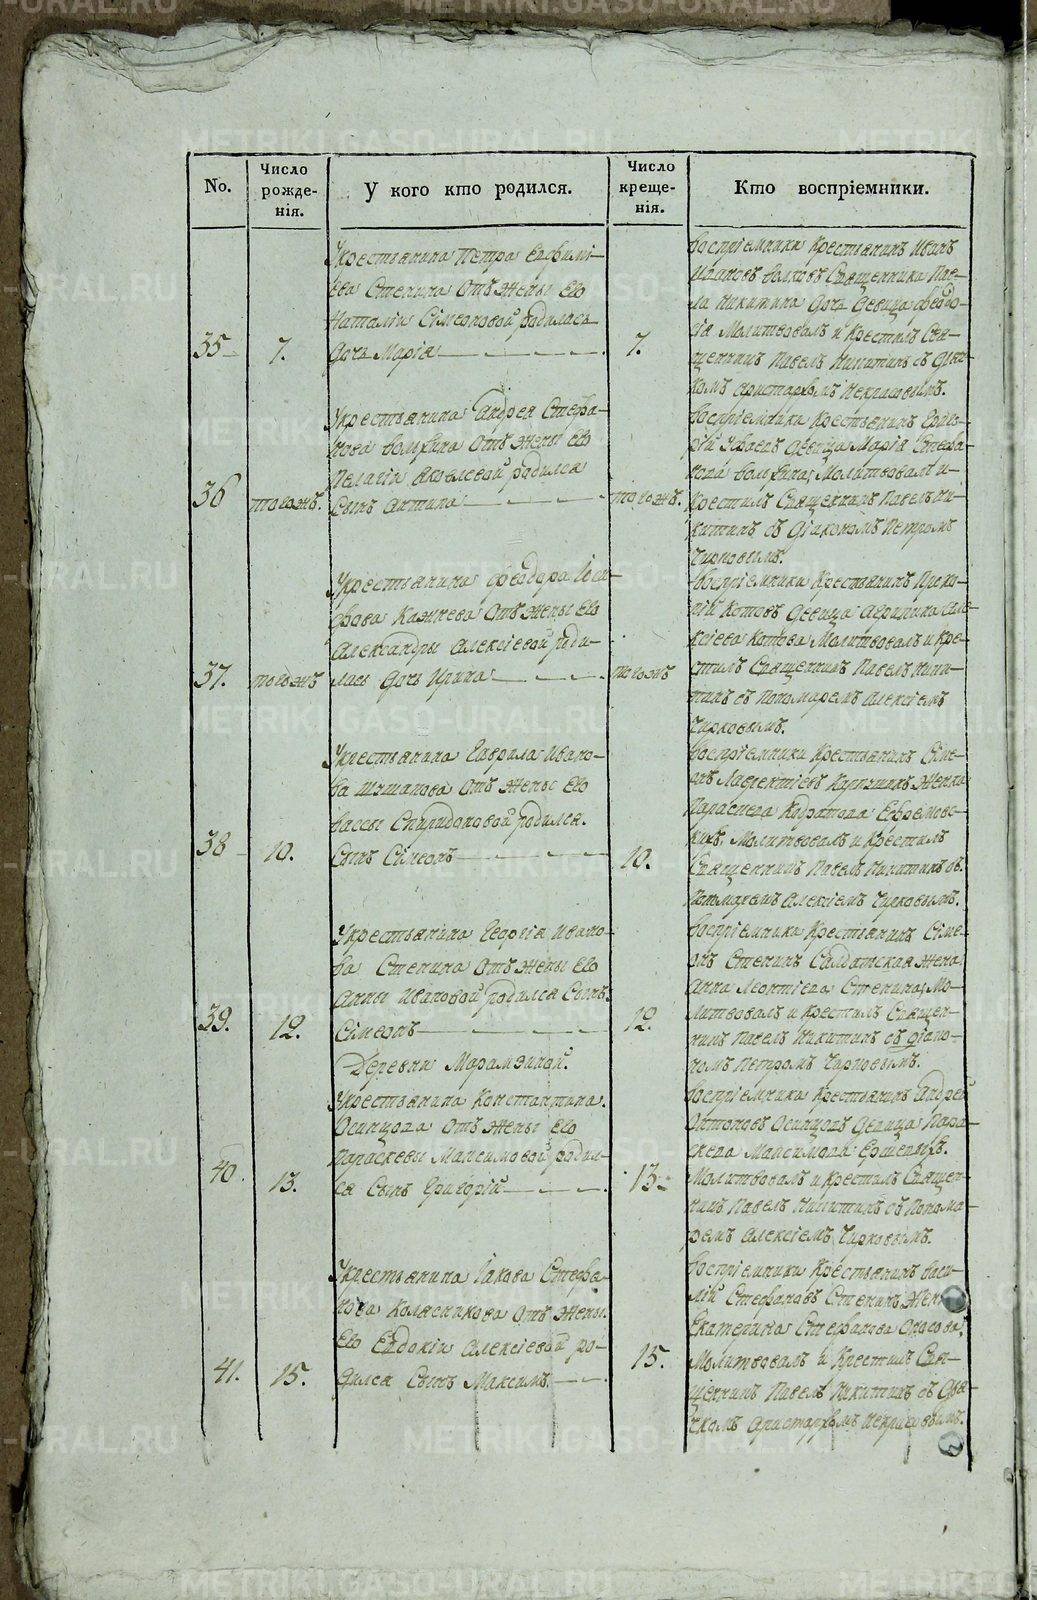 No.
Число рожде-нія.
У кого кто родился.
Число креще-нія.
Кто воспріемники.
35
7.
Укрестьянина Петра Евфимі-
ева Степина Отъ Жены Его
Наталіи Сімеоновой родилась
Дочь Марія
7.
воспріемники Крестьянинъ Иванъ
Ивановъ волковъ Священника Пав-
ла Никитина Дочь Девица Феодо-
сія Молитвовалъ и Крестилъ Свя-
щенникъ Павелъ Никитинъ съ Дья-
комъ Аристархомъ Некрасовымъ.
36
тогожъ.
Укрестьянина Андрея Стефа-
нова волкина Отъ жены Его
Пелагіи Яковлевой родился
Сынъ Антипа
тогожъ.
воспріемники Крестьянинъ
девица Марія Стефа-
нова волкина, Молитвовалъ и
Крестилъ Священникъ Павелъ Ни-
китинъ съ Діакономъ Петромъ
Чирковымъ.
37.
тогожъ
Укрестьянина Феодора Іоси-
фова Отъ Жены Его
Александры Алексіевой роди-
лась Дочь Ирина
тогожъ
Воспріемники Крестьянинъ Проко-
пій Котовъ Девица Агрипина Але-
ксіева Котова Молитвовалъ и Кре-
стилъ Священникъ Павелъ Ники-
тинъ съ Пономаремъ Алексіемъ
Чирковымъ.
38
10.
Укрестьянина Гаврила Ивано-
ва Отъ Жены Его
вассы Спиридоновой родился
Сынъ Сімеонъ
10.
воспріемники Крестьянинъ Сіме-
онъ Лаврентіевъ Женка
Параскева
Молитвовалъ и Крестилъ
Священникъ Павелъ Никитинъ съ
Пономаремъ Алексіемъ Чирковымъ.
39.
12.
Укрестьянина Георгія Ивано-
ва Степина Отъ Жены Его
Анны Ивановой родился Сынъ
Сімеонъ
12.
воспріемники Крестьянинъ Сіме-
онъ Степинъ Салдатская жена
Анна Леонтіева Степина, Мо-
литвовалъ и Крестилъ Священ-
никъ Павелъ Никитинъ съ діако-
номъ Петромъ Чирковымъ.
Деревни Марамзиной.
40.
13.
Укрестьянина Константина
Осинцова Отъ Жены Его
Параскевы Максимовой родил-
ся Сынъ Григорій
13.
воспріемники Крестьянинъ Андрей
Антоновъ Осинцовъ Девица Пара-
скева Максимова Ершевыхъ.
Молитвовалъ и Крестилъ Священ-
никъ Павелъ Никитинъ съ Понома-
ремъ Алексіемъ Чирковымъ.
41.
15.
Укрестьянина Іакова Стефа-
нова Колясникова Отъ Жены
Его Евдокіи Алексіевой ро-
дился Сынъ Максимъ.
15.
воспріемники Крестьянинъ васи-
лій Стефановъ Степинъ,
Екатерина Стефанова
Молитвовалъ и Крестилъ Свя-
щенникъ Павелъ Никитинъ съ Дья-
комъ Аристархомъ Некрасовымъ.
METRIKI.GASO-URAL.RU